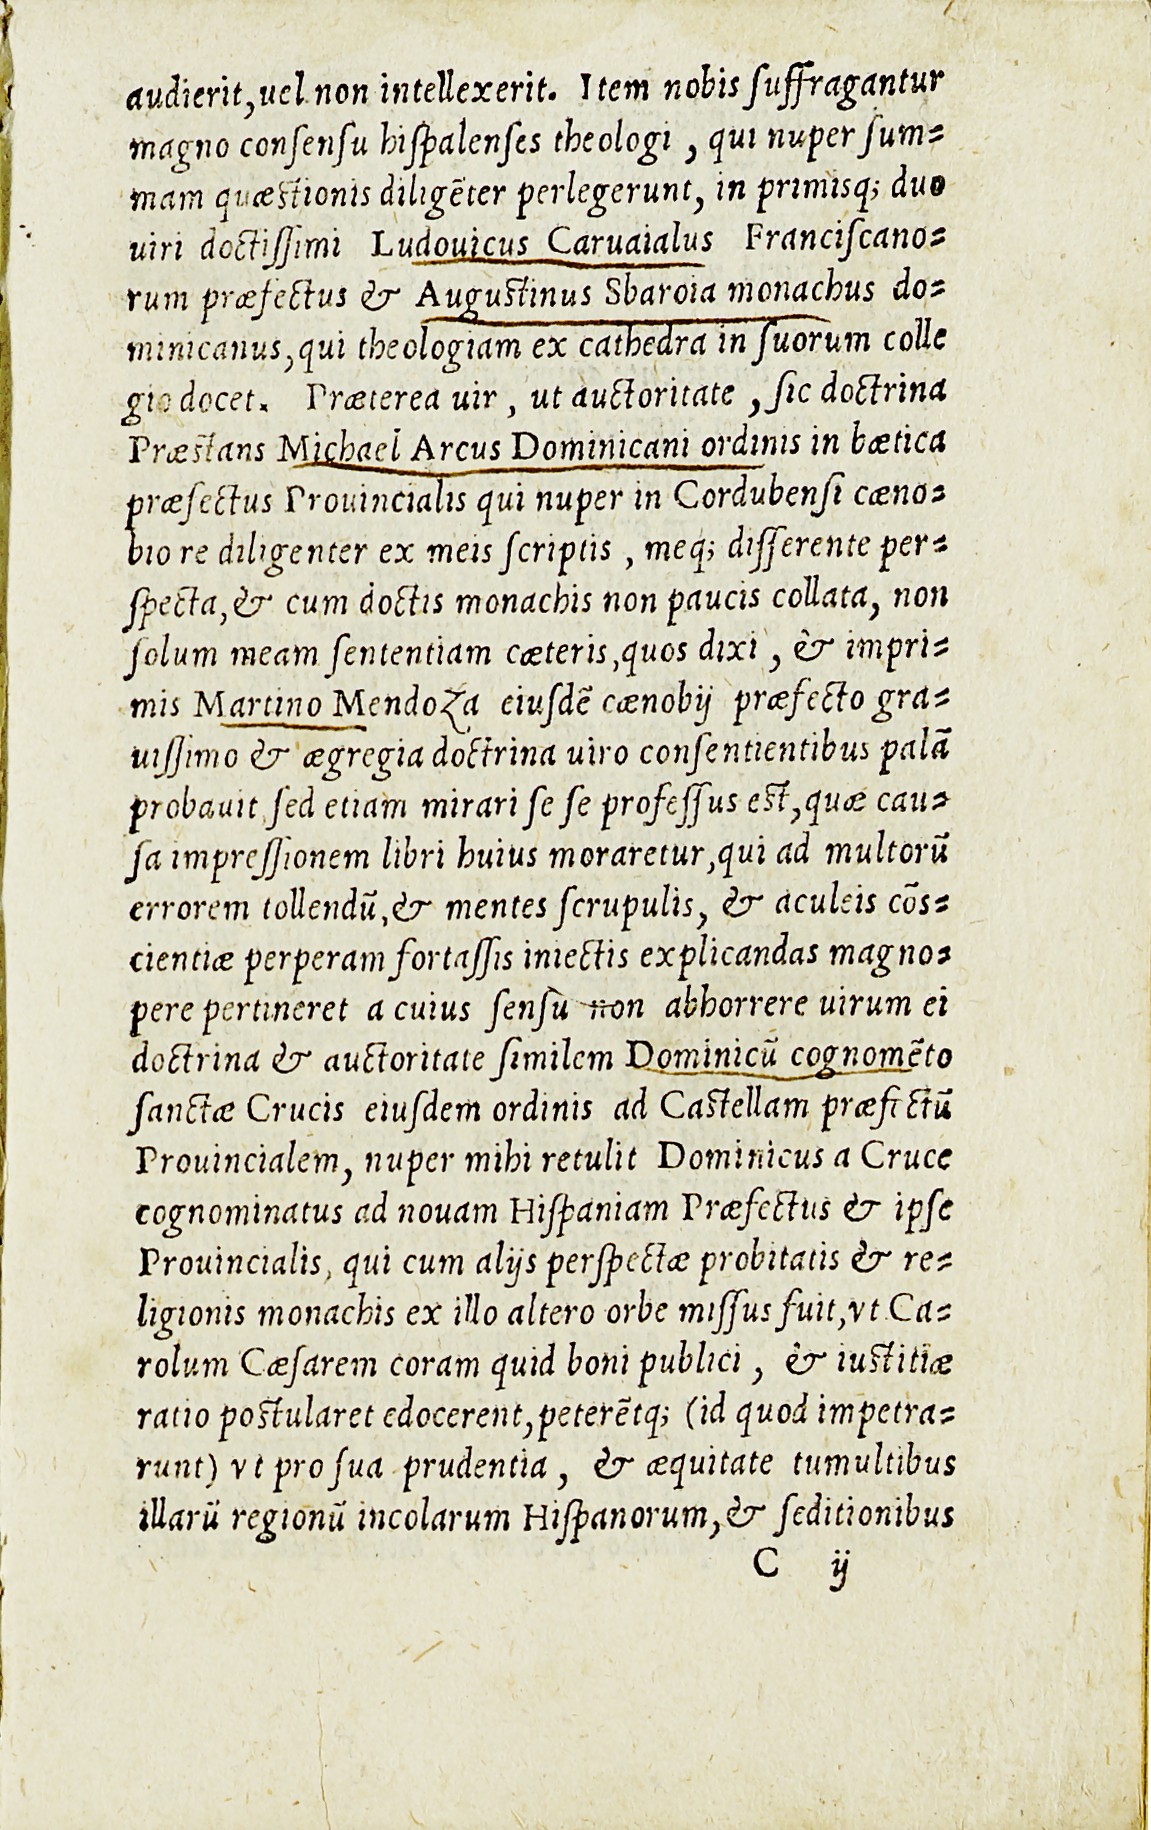 audierit, uel non intellexerit. Item nobis ſuffragantur
magno conſenſu hiſpalenſes theologi, qui nuper ſum=
mam quæstionis diligēter perlegerunt, in primisq; duo
uiri doctiſſimi Ludouicus Caruaialus Franciſcano=
rum præfectus & Augustinus Sbaroia monachus do=
minicanus, qui theologiam ex cathedra in ſuorum colle
gio docet. Præterea uir, ut auctoritate, ſic doctrina
Præstans Michael Arcus Dominicani ordinis in bætica
præfectus Prouincialis qui nuper in Cordubenſi cæno=
bio re diligenter ex meis ſcriptis, meq; diſſerente per=
ſpecta, & cum doctis monachis non paucis collata, non
ſolum meam ſententiam cæteris, quos dixi, & impri=
mis Martino Mendoza eiuſdē cænobij præfecto gra=
uiſſimo & ægregia doctrina uiro conſentientibus palā
probauit ſed etiam mirari ſe ſe profeſſus est, quæ cau=
ſa impreſſionem libri huius moraretur, qui ad multorū
errorem tollendū, & mentes ſcrupulis, & aculeis cōs=
cientiæ perperam fortaſſis iniectis explicandas magno=
pere pertineret a cuius ſenſu non abhorrere uirum ei
doctrina & auctoritate ſimilem Dominicū cognomēto
ſanctæ Crucis eiuſdem ordinis ad Castellam præfectū
Prouincialem, nuper mihi retulit Dominicus a Cruce
cognominatus ad nouam Hiſpaniam Præfectus & ipſe
Prouincialis, qui cum alijs perſpectæ probitatis & re=
ligionis monachis ex illo altero orbe miſſus fuit, vt Ca=
rolum Cæſarem coram quid boni publici, & iustitiæ
ratio postularet edocerent, peterētq; (id quod impetra=
runt) vt pro ſua prudentia, & æquitate tumultibus
illarū regionū incolarum Hiſpanorum, & ſeditionibus
C ij